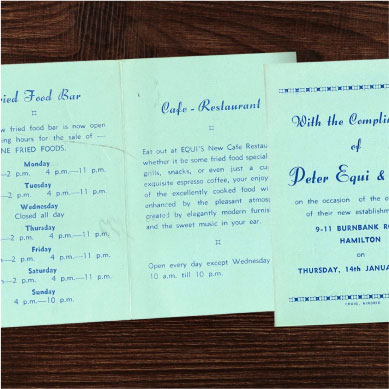 ried Food Bar
w fried food bar is now open
ing hours for the sale of —
NE FRIED FOODS.
Monday
—2 p.m. 4 p.m.—11 p.m.
Tuesday
—2 p.m. 4 p.m.—11 p.m.
Wednesday
Closed all day
Thursday
—2 p.m. 4 p.m.—11 p.m.
Friday
—2 p.m. 4 p.m.—11 p.m.
Saturday
—2 p.m. 4 p.m.—11 p.m.
Sunday
4 p.m.—10 p.m.
Cafe - Restaurant
Eat out at EQUI'S New Cafe Restau
whether it be some fried food special
grills, snacks, or even just a cu
exquisite espresso coffee, your enjoy
of the excellently cooked food wi
enhanced by the pleasant atmosp
created by elegantly modern furnis
and the sweet music in your ear.
Open every day except Wednesday
10 a.m. till 10 p.m.
With the Complim
of
Peter Equi &
on the occasion of the o
of their new establishme
9-11 BURNBANK RO
HAMILTON
on
THURSDAY, 14th JANUA
CRAIG, AIRDRIE